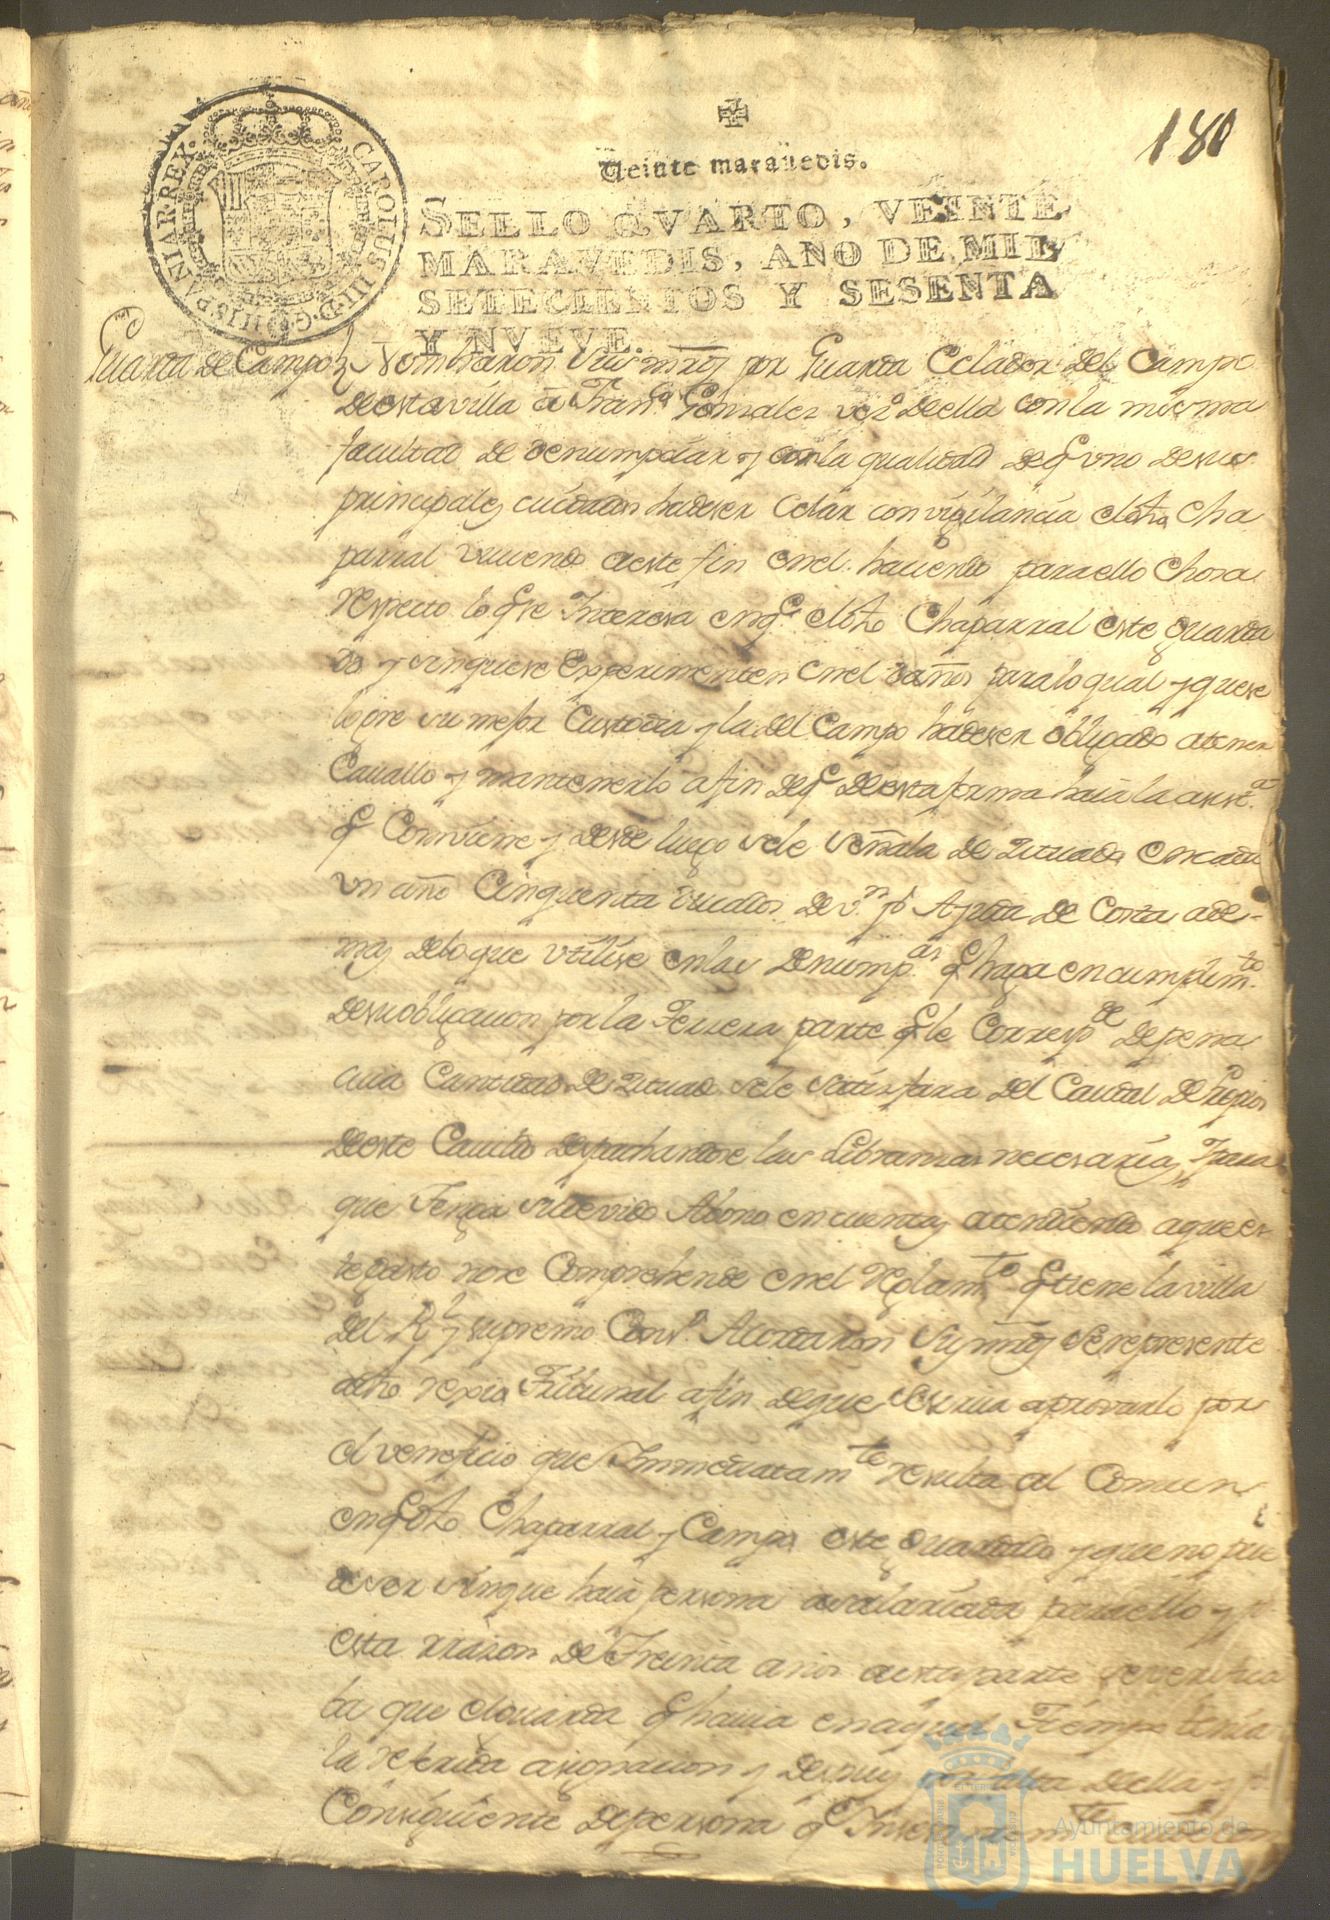 180
Veinte maravedis.
SELLO QVARTO, VEINTE
MARAVEDIS, AÑO DE MIL
SETECIENTOS Y SESENTA
Y NVEVE.
CAROLUS III D. G. HISPANIAR. REX
Guarda de Campo Nombraron sus mrds por Guarda Celador del Campo
de esta villa a Franco Gonzalez vezo de ella con la misma
facultad de denumpciar y con la qualidad de q uno de sus
principales cuidados ha de ser celar con vigilancia el dho Cha
parral viviendo a este fin en el haciendo para ello Chosa
respecto lo q se Interesa en q el dho Chaparral este guarda
do y sin que se experimenten en el daños para lo qual y que se
logre su mejor Custodia y la del Campo ha de ser obligado a tener
Cavallo y mantenerlo a fin de q de esta forma haia la asista
q Conviene y desde luego se le señala de situado en cada
un año Cinquenta ducados de vn pr Ayuda de Costa ade-
mas de lo que utilise en las denumpas q haga en cumplimto
de su obligacion por la Tersera parte q le Correspde de pena
cuia Cantidad de situado se le satisfara del Caudal de Propios
de este Cavildo despachandose las Libransas necesarias para
que Tenga su devido Abono en cuentas atendiendo a que es-
te gasto no se Comprehende en el Reglamto q tiene la villa
del Rl y supremo Consº Acordaron sus mrds se represente
a dho regio Tribunal a fin de que se sirva aprovarlo por
el veneficio que Immediatamte resulta al Comun
en q dho Chaparral y Campo este guardado y que no pue
de ser sin que haia persona asalariada para ello y pr
esta rrazon de Treinta años a esta parte se verifica
ba que el Guarda q havia en aquel Tiempo tenia
la referida asignacion y despues por falta de ella y pr
Consiguiente de persona q
Ayuntamiento de
HUELVA